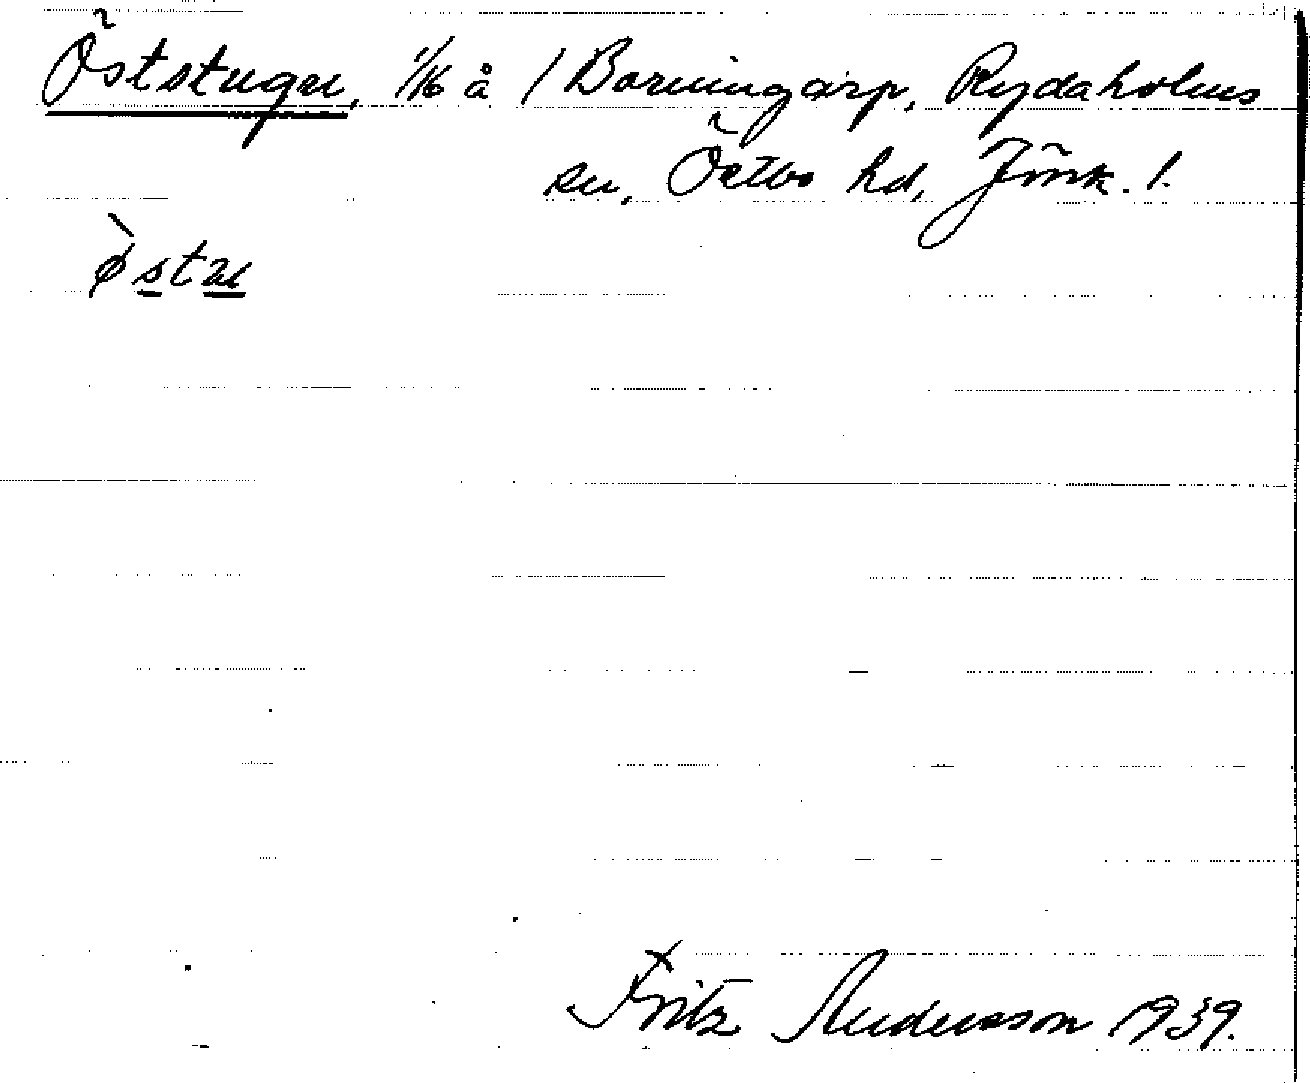 Öststugu, 1/16 å 1 Borningarp, Rydaholms
sn, Östbo hd, Jönk. l.
østu
Fritz Andersson 1939.